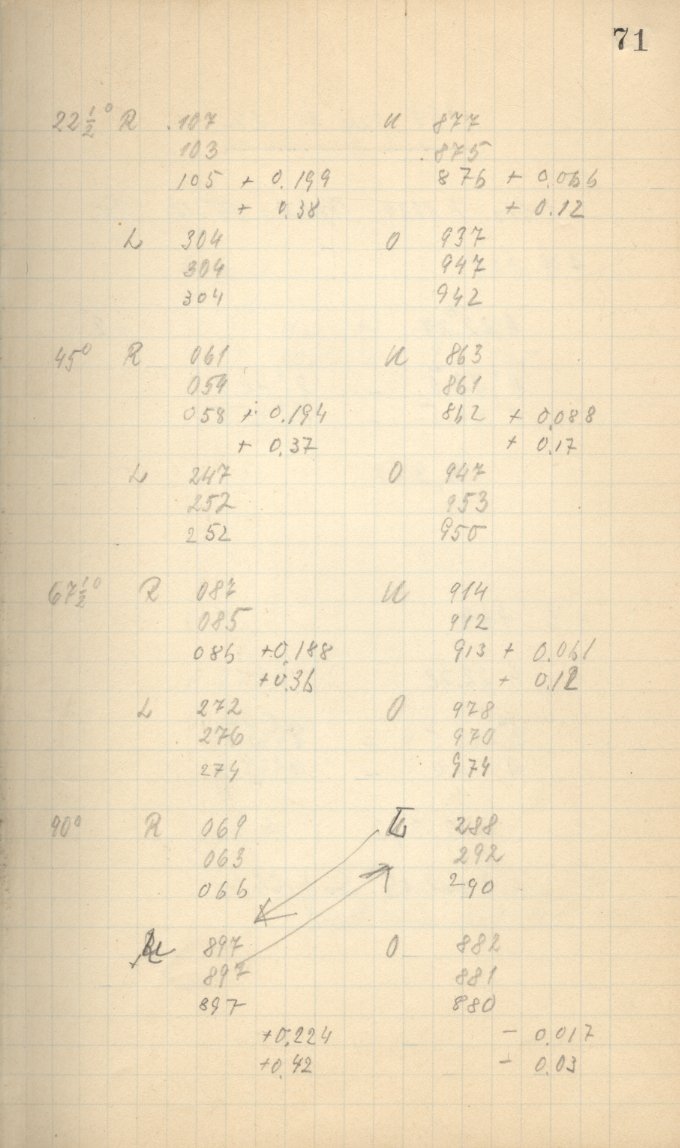 71
22 1/2° R .107 U 877
103 875
105 + 0.199 876 + 0.066
+ 0.38 + 0.12
L 304 O 937
304 947
304 942
45° R 061 U 863
054 861
058 + 0.194 862 + 0.088
+ 0.37 + 0.17
L 247 O 947
252 953
252 950
67 1/2° R 087 U 914
085 912
086 +0.188 913 + 0.061
+0.36 + 0.12
L 272 O 978
276 970
274 974
90° R 069 L 288
063 292
066 290
U 897 O 882
897 881
897 880
+0.224 - 0.017
+0.42 - 0.03